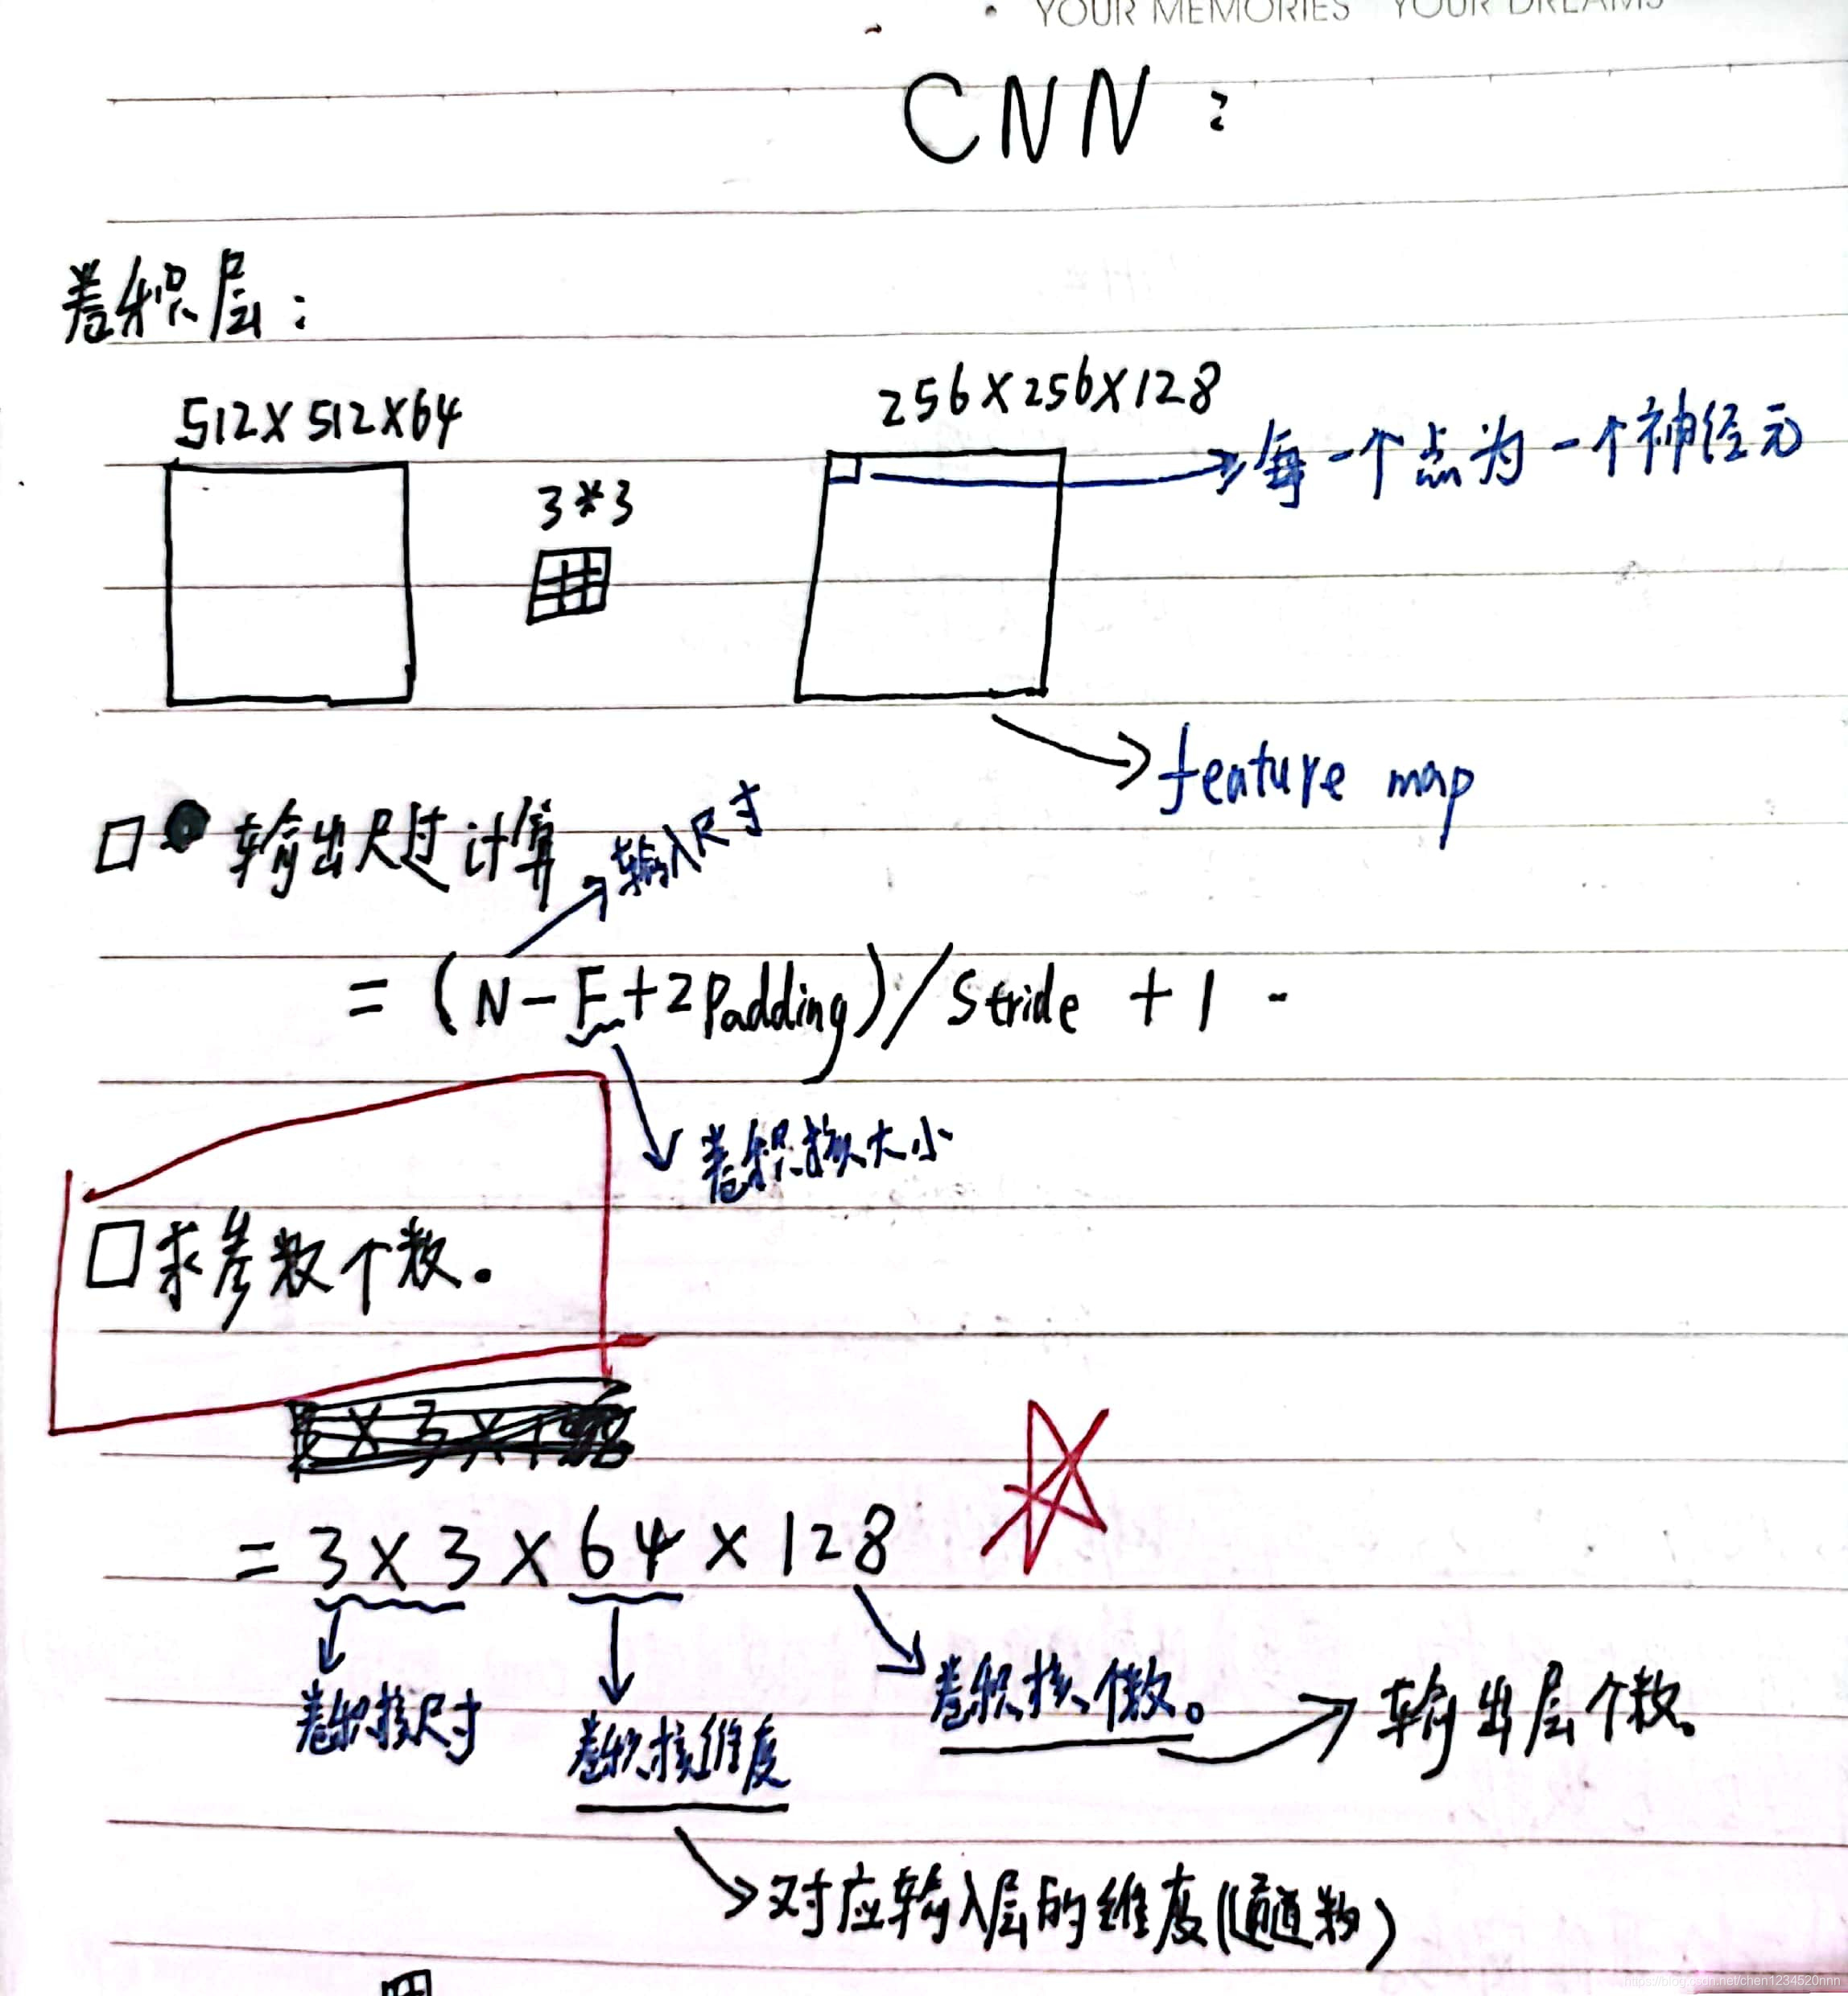 YOUR MEMORIES YOUR DREAMS
CNN:
卷积层:
512×512×64
3*3
256×256×128
每一个点为一个神经元
feature map
输出尺过计算
输入尺寸
= (N-F+2Padding)/Stride +1
卷积核大小
求参数个数.
=3×3×64×128
卷积核尺寸
卷积核维度
卷积核个数。
输出层个数。
对应输入层的维度(通道数)
https://blog.csdn.net/chen1234520nnn